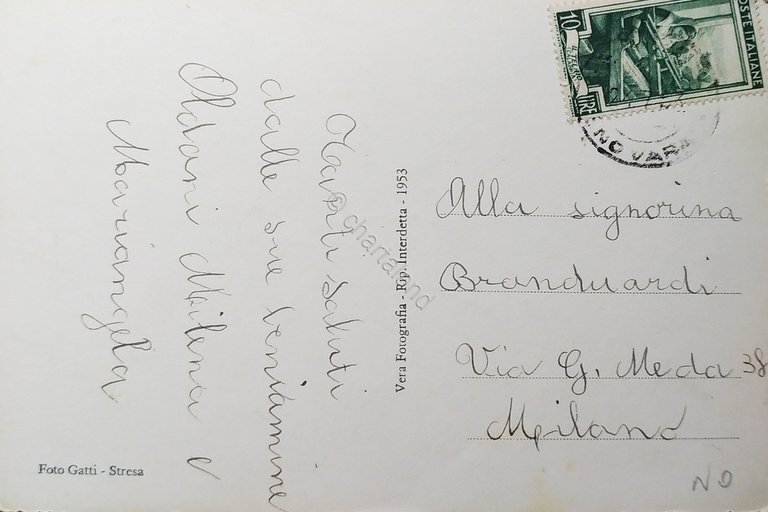 Tanti saluti
dalle sue beniamine
Oldani Milena e
Mariangela
Foto Gatti - Stresa
Vera Fotografia - Rip. Interdetta - 1953
© chartaland
10
LIRE
POSTE ITALIANE
NOVARA
Alla signorina
Branduardi
Via G. Meda 38
Milano
NO